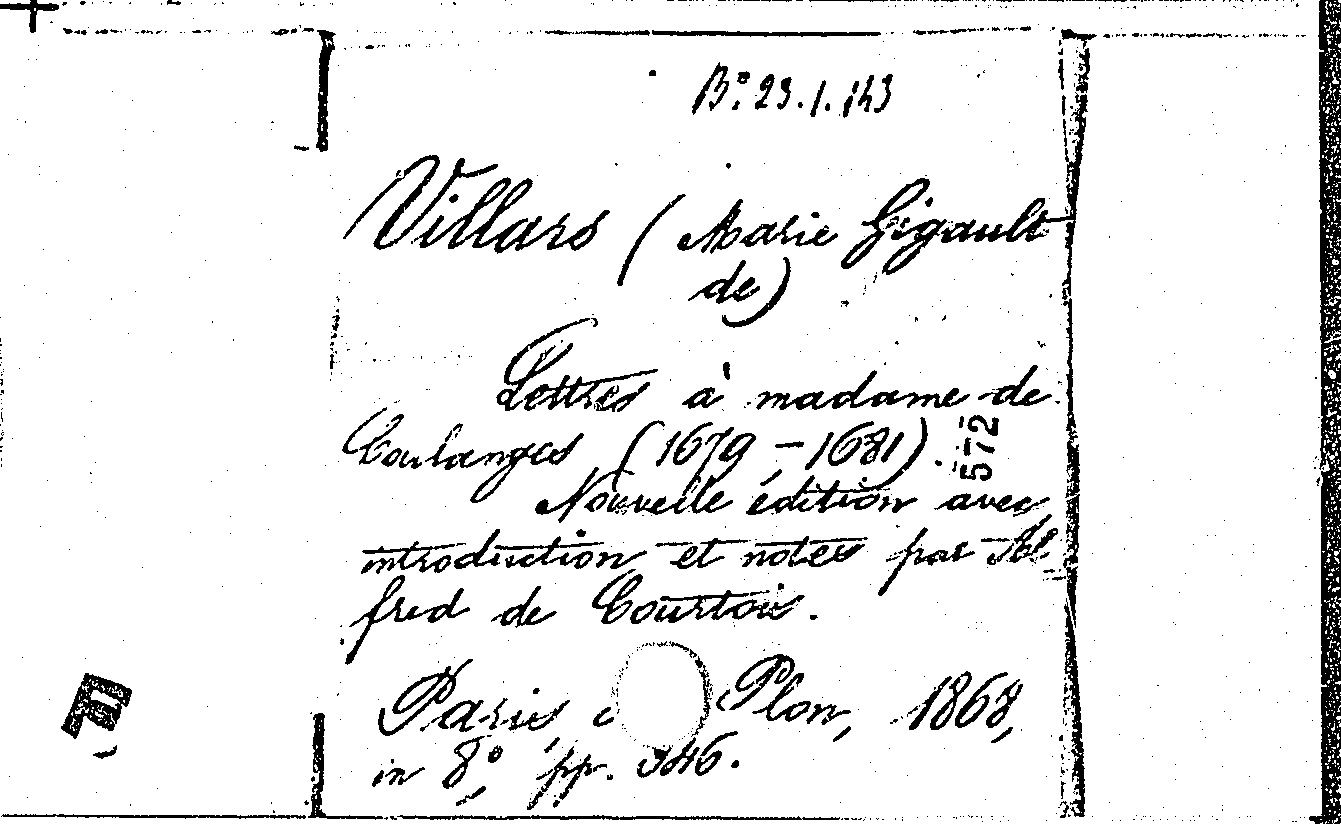 B.° 23.1.143
Villars (Marie Gigault
de)
Lettres à madame de
Coulanges (1679-1681).
572
Nouvelle édition avec
introduction et notes par Al-
fred de Courtois.
Paris, Plon, 1868,
in 8°, pp. 346.
F